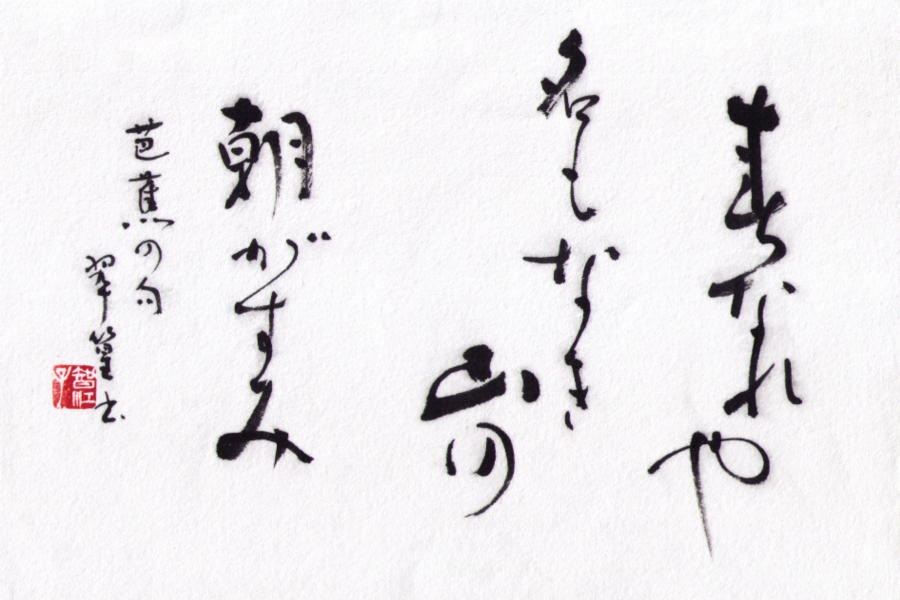 春なれや
名もなき
山の
朝がすみ
芭蕉の句
翠篁書
智江